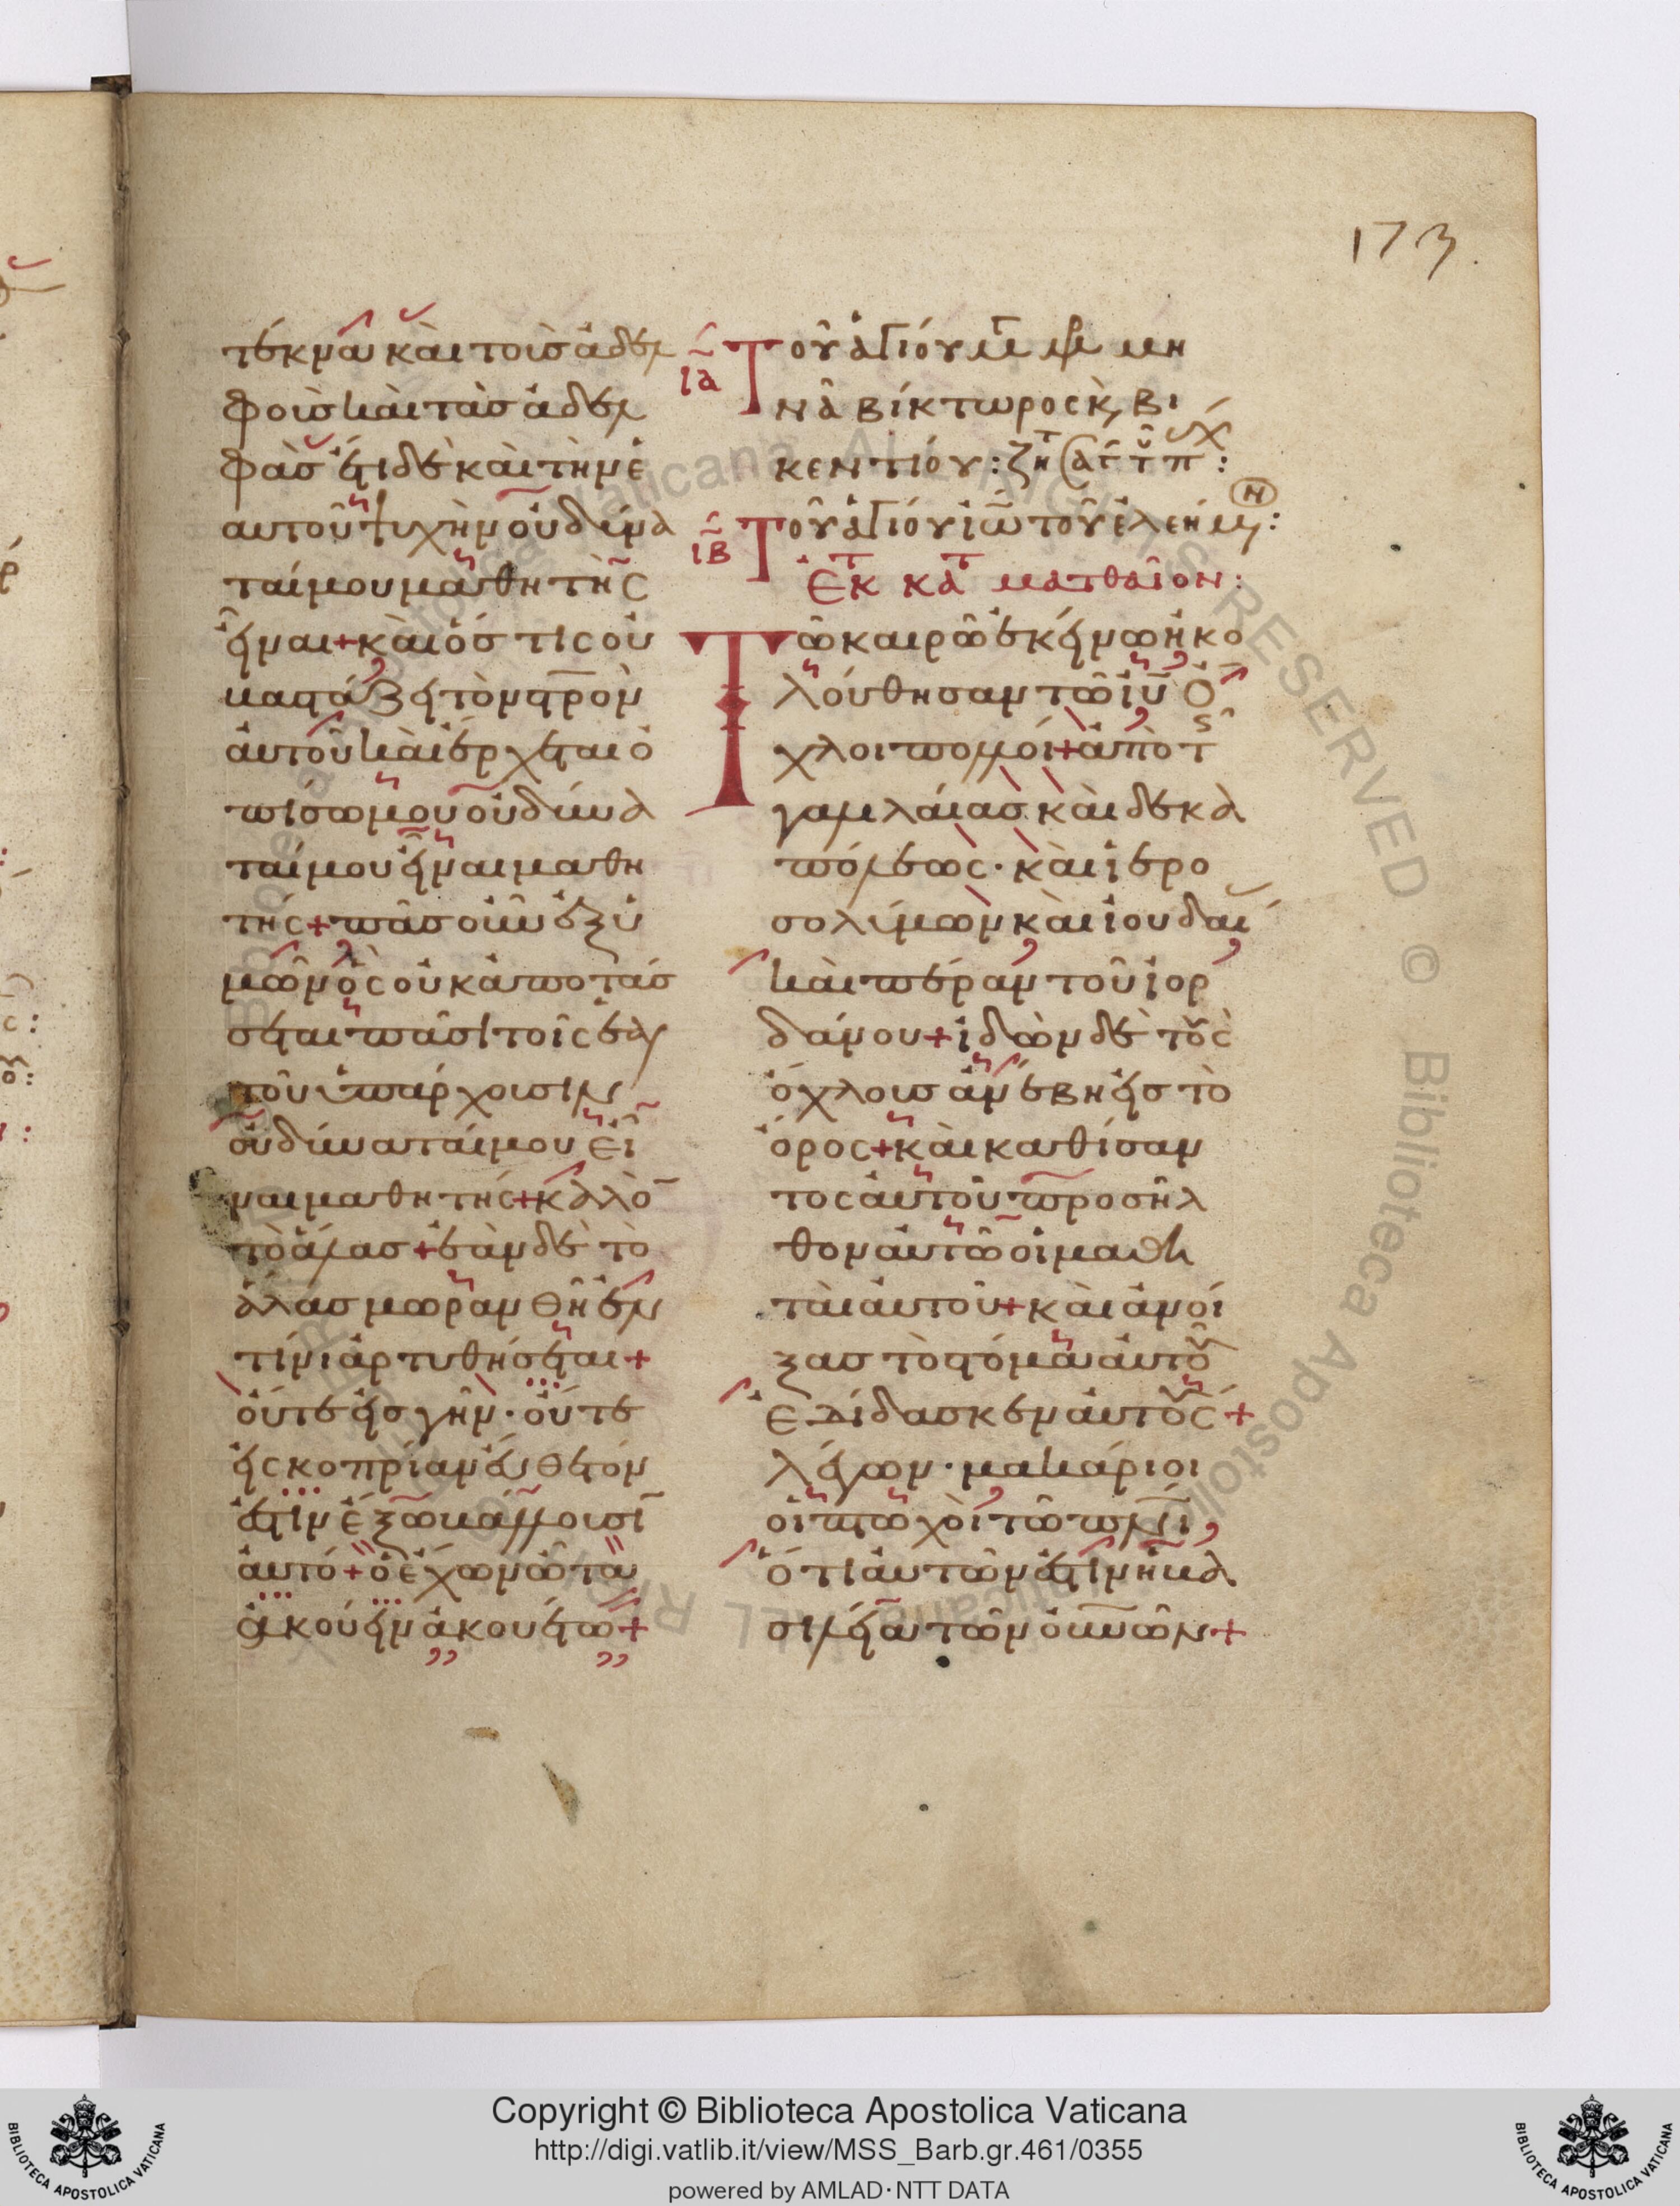 173
τέκνα καὶ τοὺς ἀδελ
φοὺς καὶ τὰς ἀδελ
φάς ἔτι δὲ καὶ τὴν ἑ
αυτοῦ ψυχὴν οὐ δύνα
ταί μου μαθητὴς
εἶναι + καὶ ὅστις οὐ
βαστάζει τὸν στρὸν
αὐτοῦ καὶ ἔρχεται ὀ
πίσω μου οὐ δύνα
ταί μου εἶναι μαθη
τής + πᾶς οὖν ἐξ ὑ
μῶν ὃς οὐκ ἀποτάσ
σεται πᾶσι τοῖς ἑαυ
τοῦ ὑπάρχουσιν
οὐ δύναταί μου εἶ
ναι μαθητής + καλὸ
τὸ ἅλας + ἐὰν δὲ τὸ
ἅλας μωρανθῆ ἐν
τίνι ἀρτυθήσεται +
οὔτε εἰς γῆν · οὔτε
εἰς κοπρίαν εὔθετόν
ἐστιν ἔξω βάλλουσῖ
αὐτό + ὁ ἔχων ὦτα
ἀκούειν ἀκουέτω +
ΙΑ Τοῦ ἁγίου μ μ μη
νᾶ βίκτωρος κ, βι
κεντίου : ζη
ΙΒ Τοῦ ἁγίου ἰῶ τοῦ ἐλεήμ :
Ἐκ κατ ματθαῖον :
Τῶ καιρῶ ἐκείνω ἠκο
λούθησαν τῶ ἰῦ ὄ
χλοι πολλοί + ἀπὸ τ
γαλιλαίας καὶ δεκα
πόλεως · καὶ ἱερο
σολύμων καὶ ἰουδαί
καὶ πέραν τοῦ ἰορ
δάνου + ἰδὼν δὲ τοὺς
ὄχλους ἀνέβη εἰς τὸ
ὄρος + καὶ καθίσαν
τος αὐτοῦ προσῆλ
θον αὐτῶ οἱ μαθη
ταὶ αὐτοῦ + καὶ ἀνοί
ξας τὸ στόμα αὐτοῦ
ἐδίδασκεν αὐτοὺς +
λέγων · μακάριοι
οἱ πτωχοὶ τῶ πνῖ
ὅτι αὐτῶν ἐστιν ἡ βα
σιλεία τῶν οὐνῶν +
Copyright © Biblioteca Apostolica Vaticana
http://digi.vatlib.it/view/MSS_Barb.gr.461/0355
powered by AMLAD·NTT DATA
BIBLIOTECA APOSTOLICA VATICANA
BIBLIOTECA APOSTOLICA VATICANA